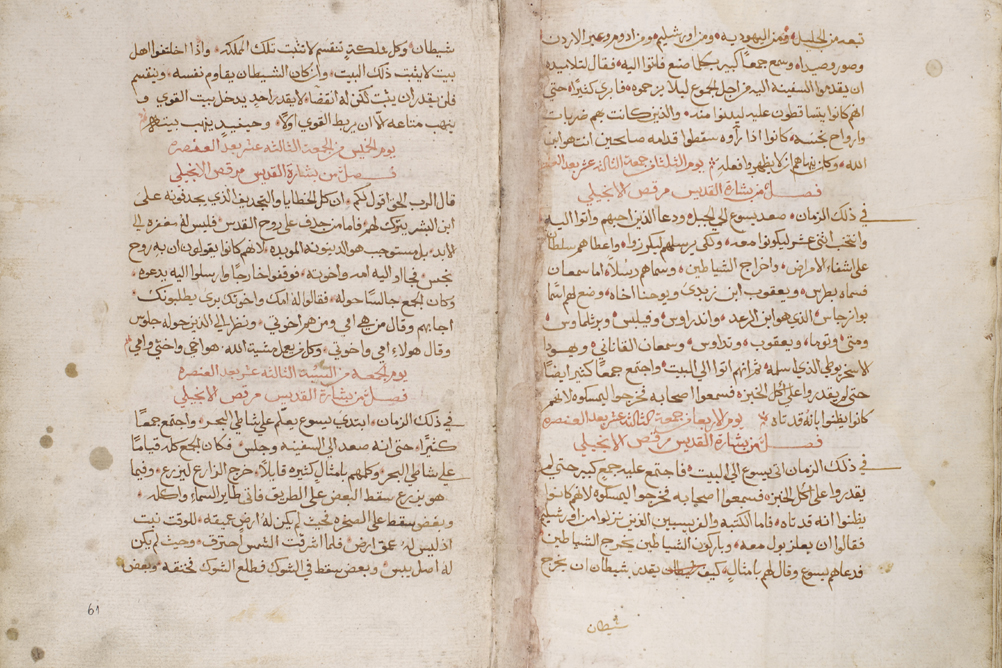 تبعه من الجليل ومن اليهودية ومن اورشليم ومن ادوم وعبر الاردن
وصور وصيدا وسمع جمعا كبير بكلما صنع فاتوا اليه فقال لتلاميذه
ان يقدموا السفينة اليه من اجل الجموع ليلا يزحموه فابري كثيرا حتى
انهم كانوا يتساقطون عليه ليدنوا منه والذين كانت بهم ضربات
وارواح نجسه كانوا اذا راوه سقطوا قدامه صايحين انت هو ابن
الله وكان ينهاهم الا يظهروا فعله يوم الثلثا من جمعة الثالثة عشر بعد العنصره
فصل من بشارة القديس مرقص الانجيلي
في ذلك الزمان صعد يسوع الى الجبل ودعا الذين احبهم واتوا اليه
وانتخب اثني عشر ليكونوا معه ولكي يرسلهم ليكرزوا واعطاهم سلطانا
على اشفاء الامراض واخراج الشياطين وسماهم رسلا اما سمعان
فسماه بطرس ويعقوب ابن زبدي ويوحنا اخاه ووضع لهم اسما
بوانرجاس الذي هو ابن الرعد واندراوس وفيلبس وبرثلماوس
ومتى وتوما ويعقوب وتداوس وسمعان القاناني ويهودا
الاسخريوطي الذي اسلمه ثم انهم اتوا الى البيت واجتمع جمعا كثيرا ايضا
حتى لم يقدروا على اكل الخبز فسمعوا اصحابه فخرجوا ليمسكوه لانهم
كانوا يظنوا بانه قد تاه يوم الاربعا من جمعة الثالثة عشر بعد العنصره
فصل من بشارة القديس مرقص الانجيلي
في ذلك الزمان اتى يسوع الى البيت فاجتمع عليه جمع كبير حتى لم
يقدروا على اكل الخبز فسمعوا اصحابه فخرجوا ليمسكوه لانهم كانوا
يظنوا انه قد تاه فاما الكتبة والفريسيين الذين نزلوا من اورشليم
فقالوا ان بعلزبول معه وباركون الشياطين يخرج الشياطين
فدعاهم يسوع وقال لهم بامثال كيف يقدر شيطان ان يخرج
شيطان
شيطان وكل مملكة تنقسم لا تثبت تلك المملكه واذا اختلفوا اهل
بيت لا يثبت ذلك البيت وان كان الشيطان يقاوم نفسه وينقسم
فلن يقدر ان يثبت لكن له انقضا لا يقدر احد يدخل بيت القوي و
ينهب متاعه الا ان يربط القوي اولا وحينيذ ينهب بيته
يوم الخميس من الجمعة الثالثه عشر بعد العنصره
فصل من بشارة القديس مرقص الانجيلي
قال الرب الحق اقول لكم ان كل الخطايا والتجديف الذي يجدفونه على
ابن البشر يترك لهم فاما من جدف على روح القدس فليس له مغفرة الى
الابد بل مستوجب هو الدينونة الموبده لانهم كانوا يقولون ان به روح
نجس فجاوا اليه امه واخوته فوقفوا خارجا وارسلوا اليه يدعوه
وكان الجمع جالسا حوله فقالوا له امك واخوتك برى يطلبونك
اجابهم وقال من هي امي ومن هم اخوتي ونظر الى الذين حوله جلوس
وقال هولاء امي واخوتي وكل من يعمل مشية الله هو اخي واختي وامي
يوم الجمعه من السبة الثالثه عشر بعد العنصره
فصل من بشارة القديس مرقص الانجيلي
في ذلك الزمان ابتدي يسوع يعلم على شاطي البحر واجتمع جمعا
كثيرا حتى انه صعد الى السفينه وجلس فكان الجمع كله قياما
على شاطي البحر وكلمهم بامثال كثيره قايلا خرج الزارع ليزرع وفيما
هو يزرع سقط البعض على الطريق فاتى طاير السماء واكله
وبعض سقط على الصخره بحيث لم يكن له ارض عميقه وللوقت نبت
اذ ليس له عمق ارض فلما اشرقت الشمس احترق وحيث لم يكن
له اصل يبس وبعض سقط في الشوك فطلع الشوك فخنقه وبعض
61